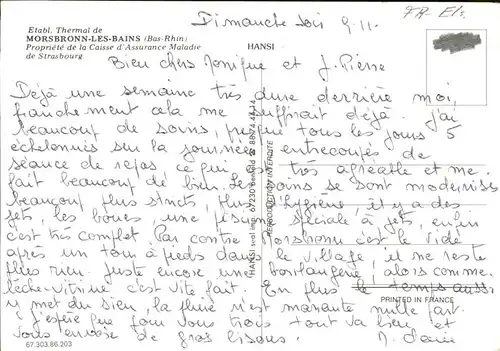 Dimanche soir 9.11.
FR-Els.
Etabl. Thermal de
MORSBRONN-LES-BAINS (Bas-Rhin)
Propriété de la Caisse d'Assurance Maladie
de Strasbourg
HANSI
Bien chers Monique et J. Pierre
Déjà une semaine très dure derrière moi,
franchement cela me suffirait déjà. J'ai
beaucoup de soins, presque tous les jours 5
échelonnés sur la journée entrecoupés de
séance de repos ce qui est très agréable et me
fait beaucoup de bien. Les soins se sont modernisés
beaucoup plus stricts, plus d'hygiène, il y a des
jets, les boues, une piscine spéciale à jets, enfin
c'est très complet. Par contre Morsbronn c'est le vide
après un tour à pieds dans le village il ne reste
plus rien. Juste encore une boulangerie, alors comme
lèche-vitrine c'est vite fait. En plus le temps aussi
y met du sien, la pluie n'est manante nulle part.
J'espère que pour vous trois tout va bien et
vous envoie de gros bisous.
HANSI sarl imp. 67250 Seebach
REPRODUCTION INTERDITE
PRINTED IN FRANCE
67.303.86.203